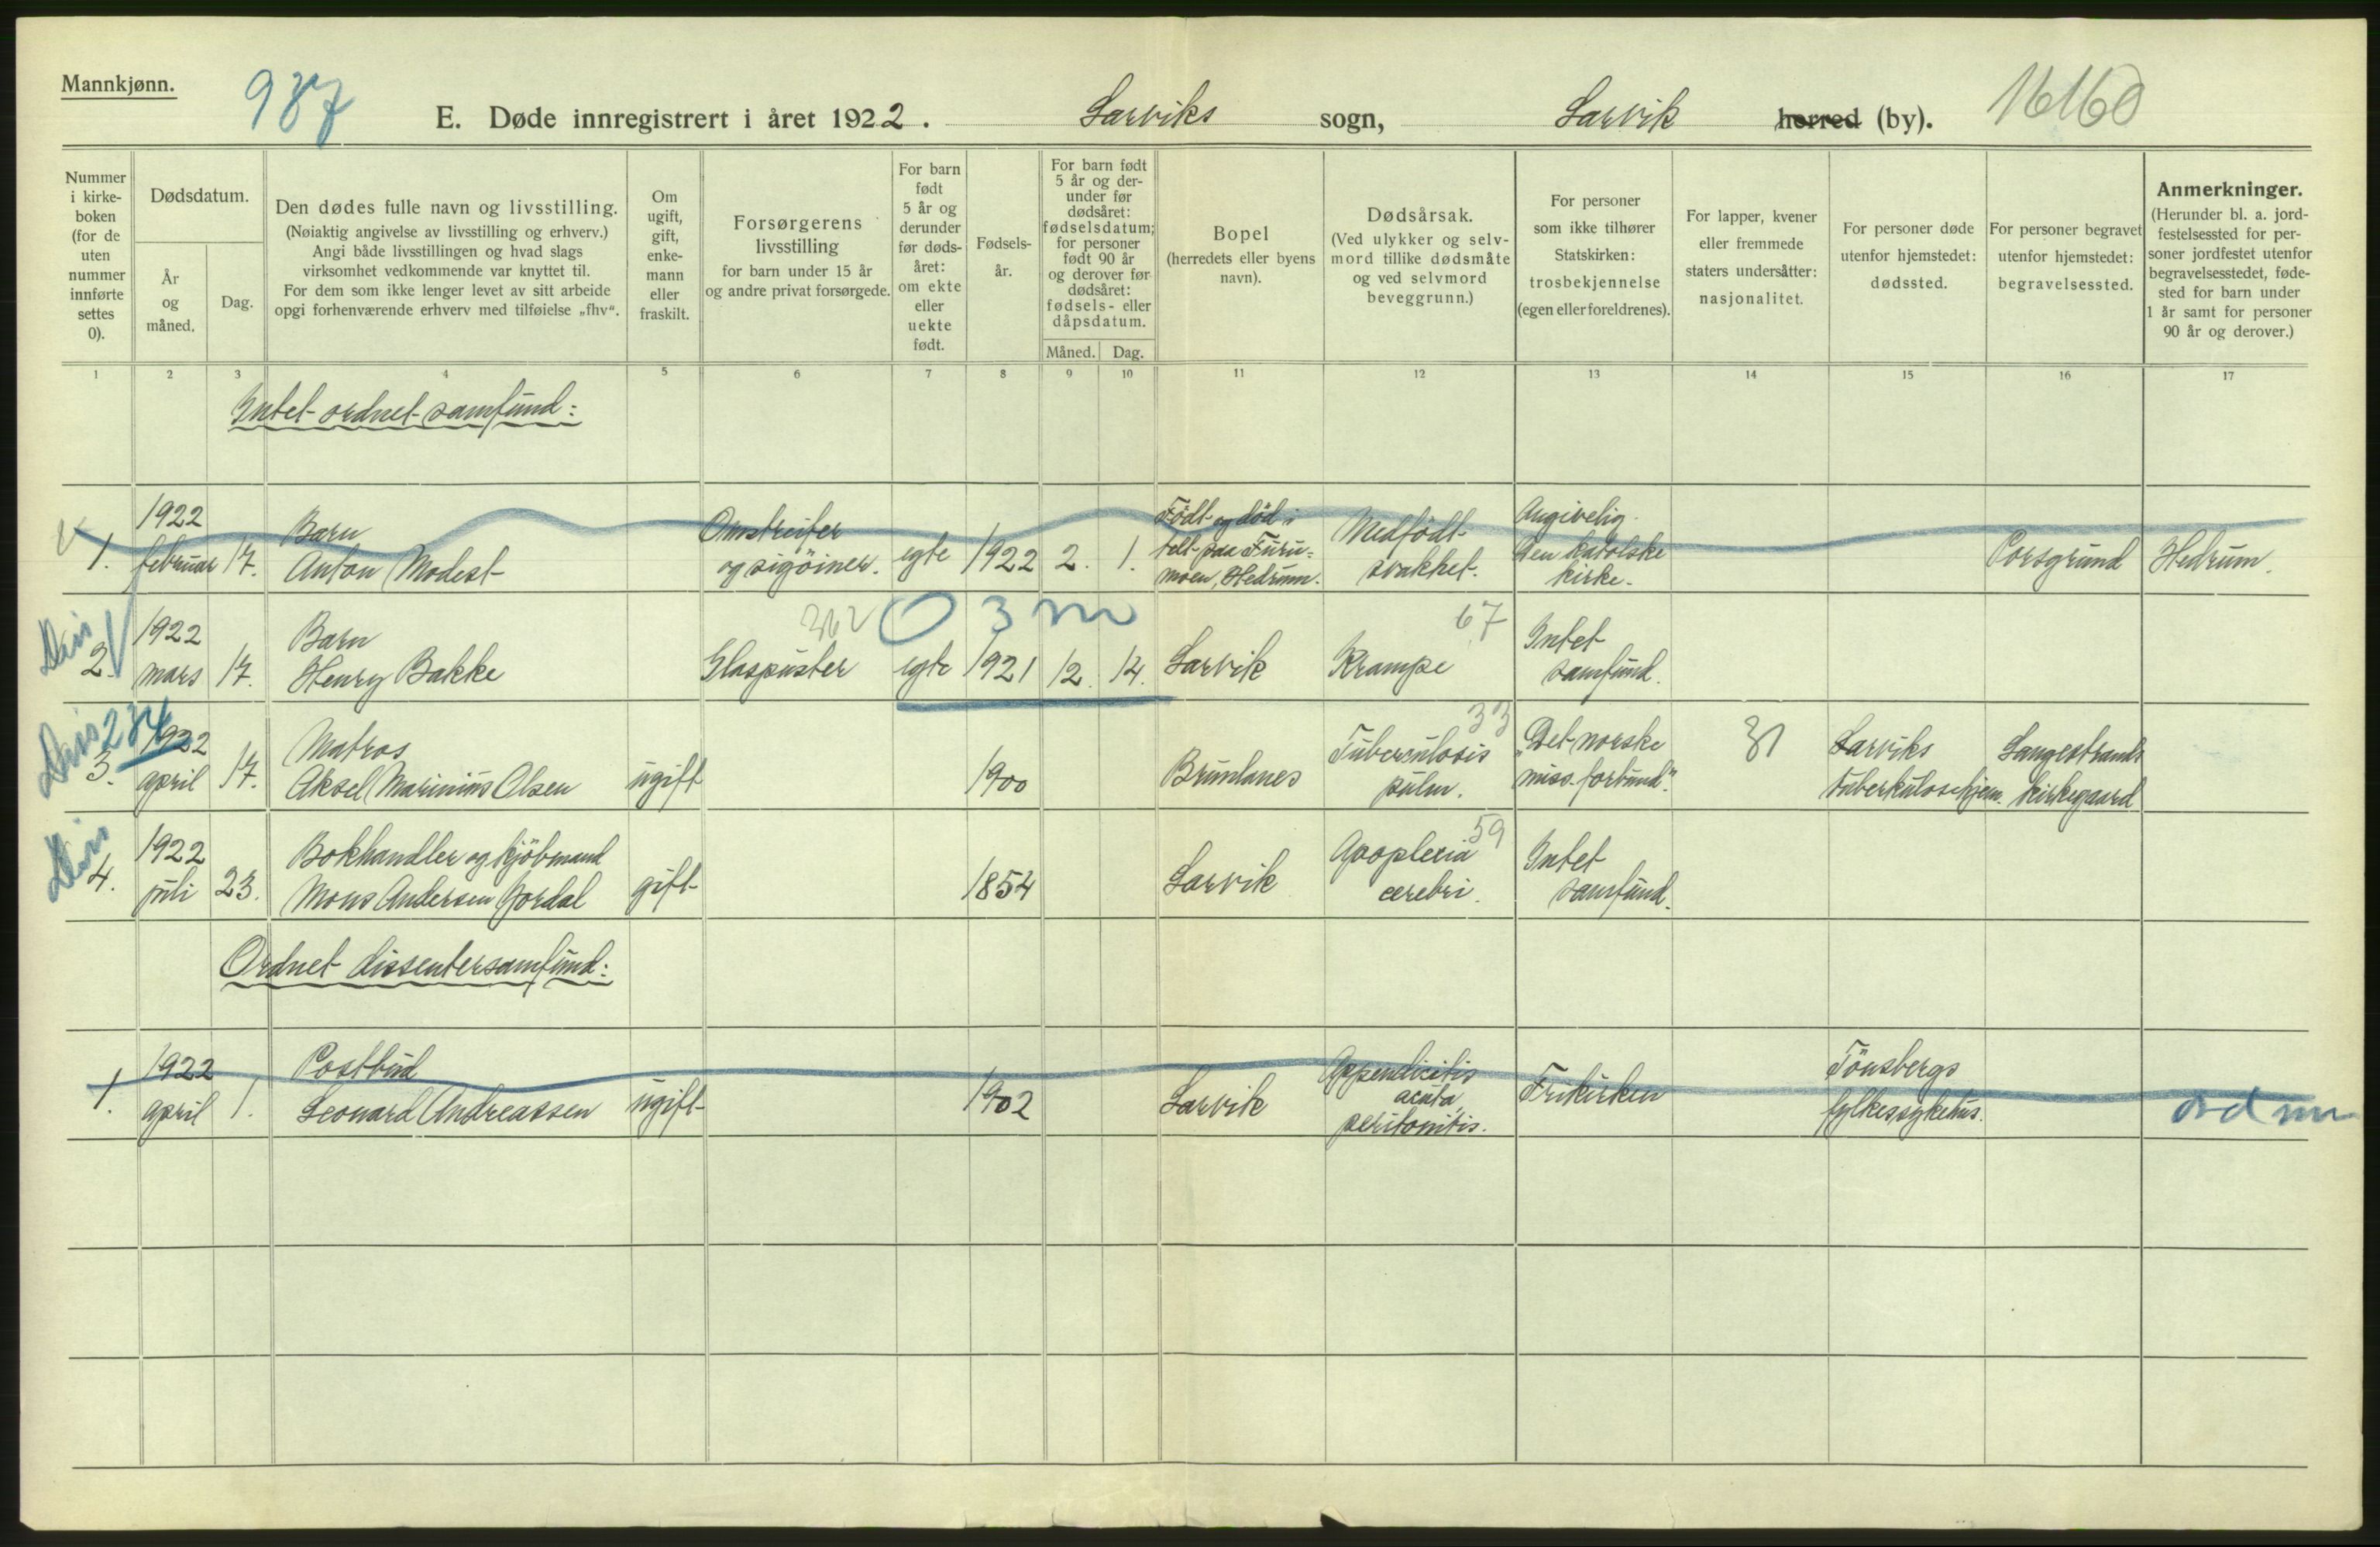 Mannkjønn.
987
E. Døde innregistrert i året 1922. Larviks sogn, Larvik herred (by).
16160
Nummer i kirke-boken (for de uten nummer innførte settes 0).
Dødsdatum.
År og måned.
Dag.
Den dødes fulle navn og livsstilling.
(Nøiaktig angivelse av livsstilling og erhverv.)
Angi både livsstillingen og hvad slags
virksomhet vedkommende var knyttet til.
For dem som ikke lenger levet av sitt arbeide
opgi forhenværende erhverv med tilføielse „fhv“.
Om ugift, gift, enke-mann eller fraskilt.
Forsørgerens livsstilling
for barn under 15 år
og andre privat forsørgede.
For barn født 5 år og derunder før døds-året: om ekte eller uekte født.
Fødsels-år.
For barn født 5 år og der-under før dødsåret: fødselsdatum; for personer født 90 år og derover før dødsåret: fødsels- eller dåpsdatum.
Måned. Dag.
Bopel
(herredets eller byens navn).
Dødsårsak.
(Ved ulykker og selv-mord tillike dødsmåte og ved selvmord beveggrunn.)
For personer som ikke tilhører Statskirken: trosbekjennelse (egen eller foreldrenes).
For lapper, kvener eller fremmede staters undersåtter: nasjonalitet.
For personer døde utenfor hjemstedet: dødssted.
For personer begravet utenfor hjemstedet: begravelsessted.
Anmerkninger.
(Herunder bl. a. jord-festelsessted for per-soner jordfestet utenfor begravelsesstedet, føde-sted for barn under 1 år samt for personer 90 år og derover.)
1 2 3 4 5 6 7 8 9 10 11 12 13 14 15 16 17
Intet ordnet samfund:
1. 1922 februar 17. Barn Anton Modest Omstreifer og sigöiner. egte 1922 2. 1. Födt og död i telt paa Furu-moen, Hedrum. Medfödt svakhet. Angivelig den katolske kirke. Porsgrund Hedrum.
0 3 m
Dis 2. 1922 mars 17. Barn Henry Bakke Glaspuster egte 1921 12. 14. Larvik Krampe 67 Intet samfund.
Dis 284
3. 1922 april 17. Matros Aksel Marinius Olsen ugift 1900 Brunlanes Tuberculosis pulm. 33 „Det norske miss. forbund". 31 Larviks tuberkulosehjem. Langestrands kirkegaard
Dis 4. 1922 juli 23. Bokhandler og kjöbmand Mons Andersen Jordal gift 1854 Larvik Apoplexia cerebri. 59 Intet samfund.
Ordnet dissentersamfund:
1. 1922 april 1. Postbud Leonard Andreassen ugift 1902 Larvik Appendicitis acuta, peritonitis. Frikirken Tönsbergs fylkessykehus.